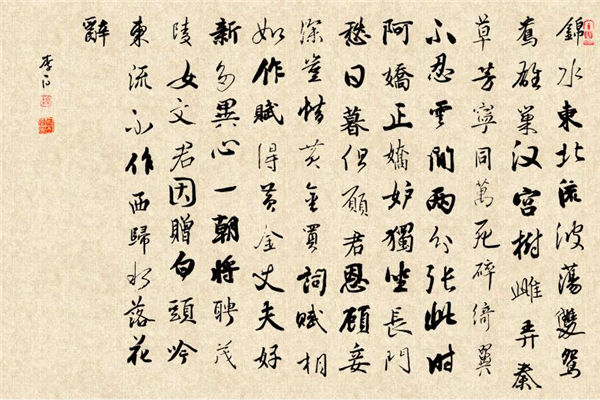 錦水東北流波蕩雙鴛
鴦雄巢汉宮樹雌弄秦
草芳寧同萬死碎綺翼
不忍雲間兩分張此時
阿嬌正嬌妒獨坐長門
愁日暮但願君恩顧妾
深豈惜黃金買詞賦相
如作賦得黃金丈夫好
新多異心一朝將聘茂
陵女文君因贈白頭吟
東流不作西歸水落花
辭
李白